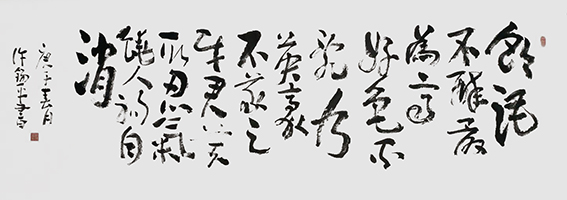 飲酒
不醉最
為高
好色不
亂乃
英豪
不義之
財君莫
取忍氣
饒人禍自
消
庚子 月